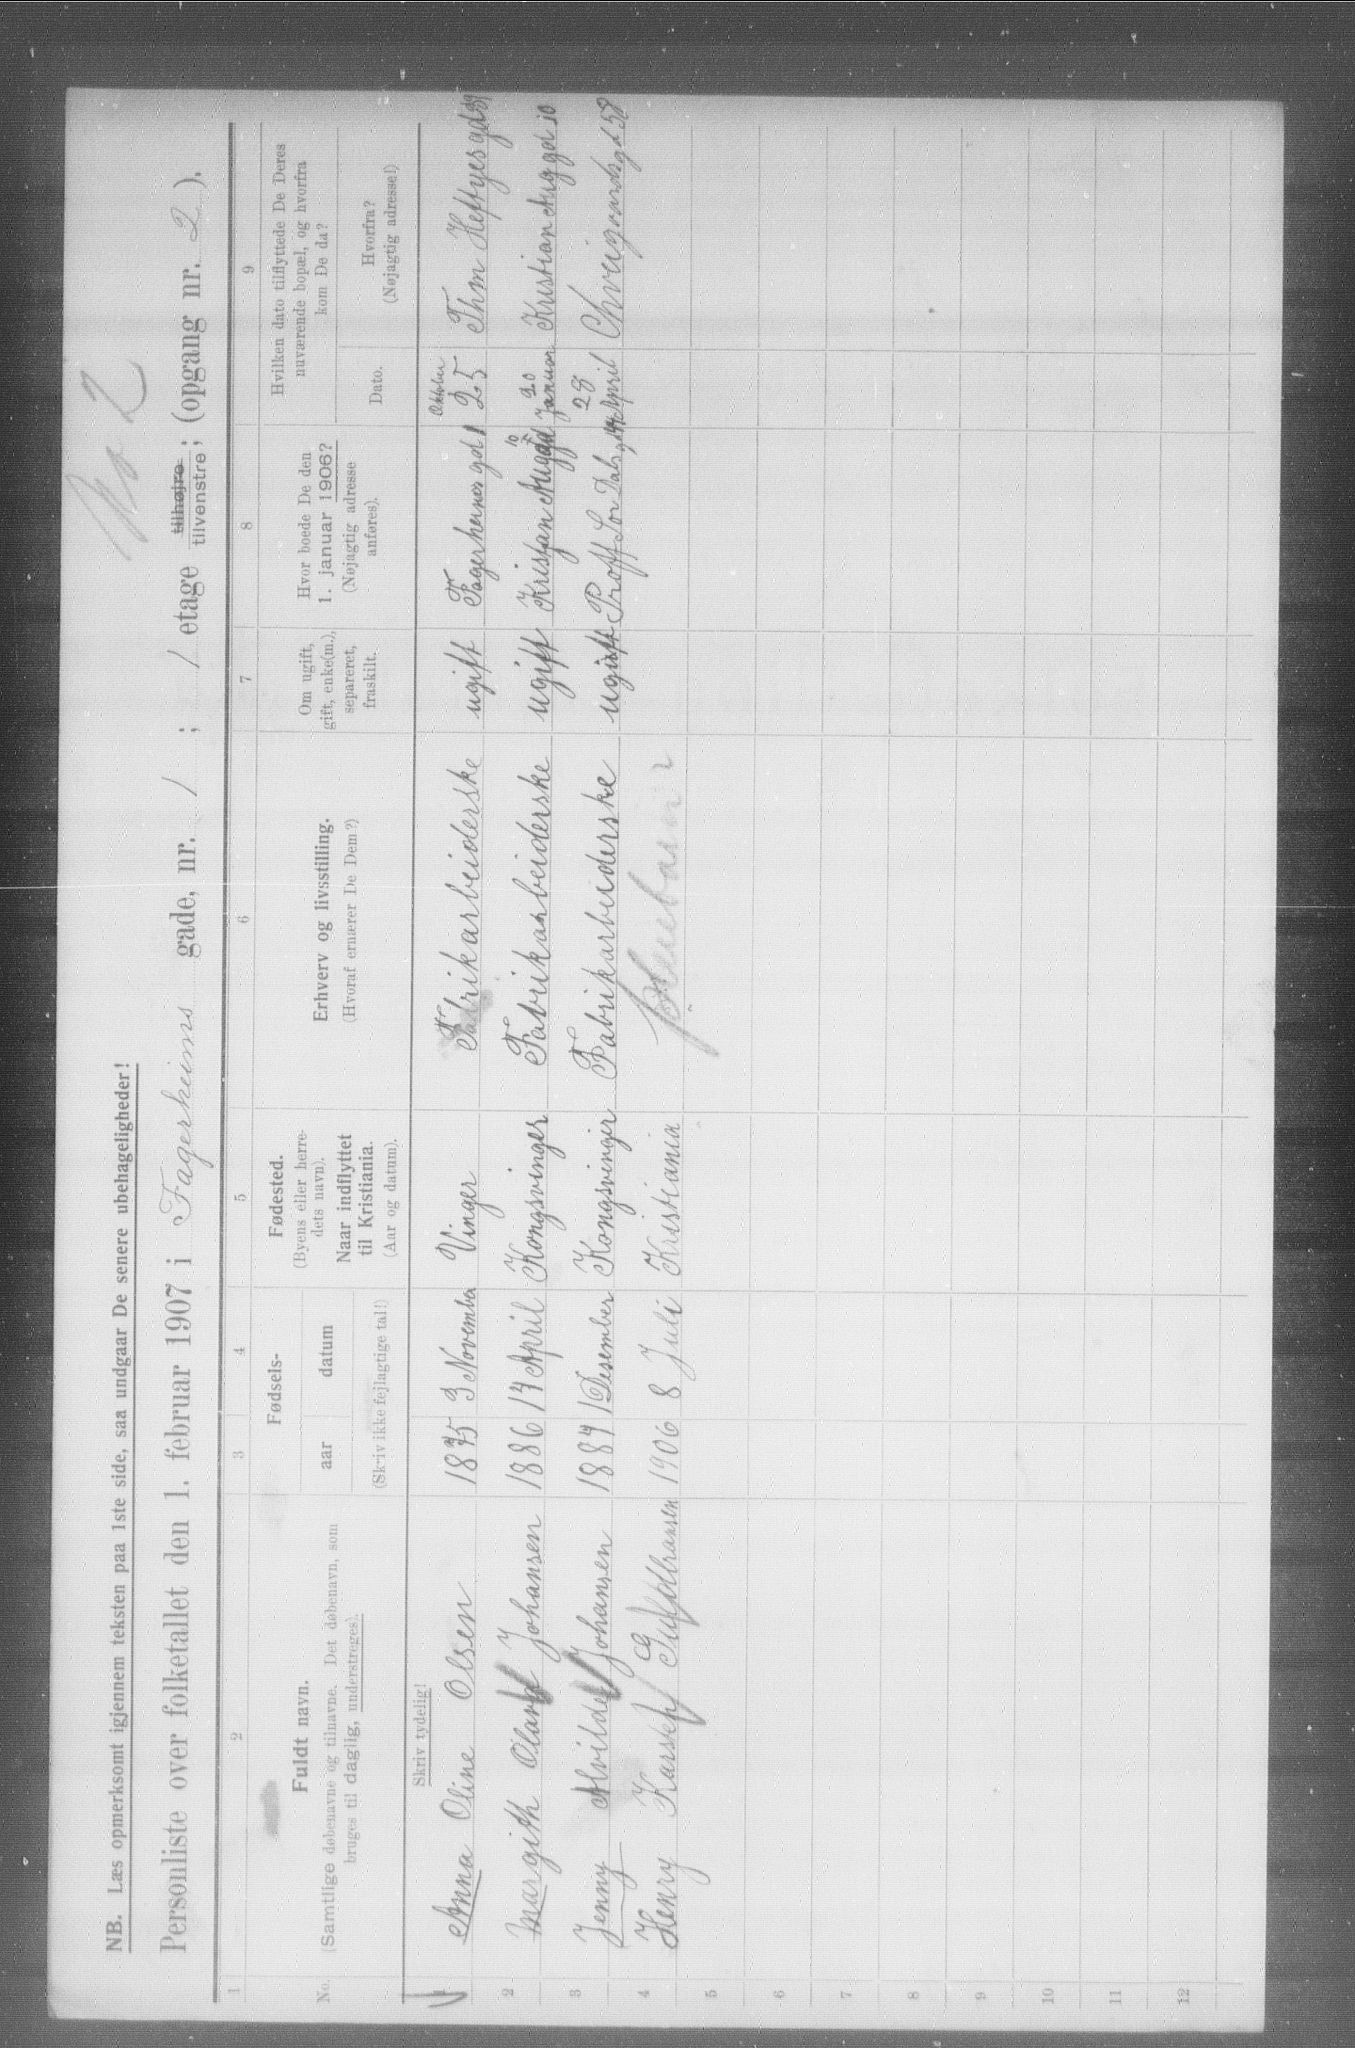 No 2
NB. Læs opmerksomt igjennem teksten paa 1ste side, saa undgaar De senere ubehageligheder!
Personliste over folketallet den 1. februar 1907 i Fagerheims gade, nr. 1 ; 1 etage tilhøjre tilvenstre ; (opgang nr. 2 ).
1 2 3 4 5 6 7 8 9
No.
Fuldt navn.
(Samtlige døbenavne og tilnavne. Det døbenavn, som
bruges til daglig, understreges).
Fødsels-
aar datum
(Skriv ikke fejlagtige tal!)
Fødested.
(Byens eller herre-
dets navn).
Naar indflyttet
til Kristiania.
(Aar og datum).
Erhverv og livsstilling.
(Hvoraf ernærer De Dem?)
Om ugift,
gift, enke(m.),
separeret,
fraskilt.
Hvor boede De den
1. januar 1906?
(Nøjagtig adresse
anføres).
Hvilken dato tilflyttede De Deres
nuværende bopæl, og hvorfra
kom De da?
Dato.
Hvorfra?
(Nøjagtig adresse!)
Skriv tydelig!
1 Anna Oline Olsen 1875 3 November Vinger Fabrikarbeiderske ugift Fagerheimsgd 1 25 Oktober Thm Heftyesgd
2 Margith Johansen 1886 17 April Kongsvinger Fabrikarbeiderske ugift Kristjan Auggd 10 20 Januar Kristian Auggd 10
3 Jenny Alvilde Johansen 1887 1 Desember Kongsvinger Fabrikarbeiderske ugift Proff Dalsg 28 April
4 Henry 1906 8 Juli Kristiania pleiebarn
5
6
7
8
9
10
11
12